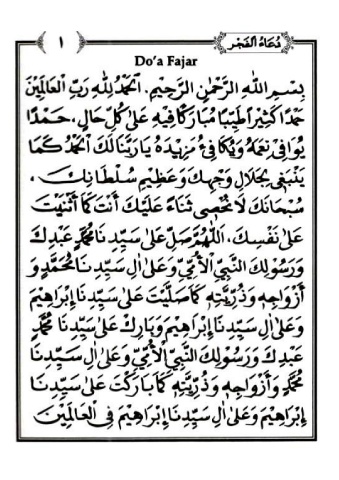 ١
دُعَاءُ الْفَجْر
Do'a Fajar
بِسْمِ اللهِ الرَّحْمٰنِ الرَّحِيْمِ. اَلْحَمْدُ لِلّٰهِ رَبِّ الْعَالَمِيْنَ
حَمْدًا كَثِيْرًا طَيِّبًا مُبَارَكًا فِيْهِ عَلٰى كُلِّ حَالٍ، حَمْدًا
يُوَافِيْ نِعَمَهُ وَيُكَافِئُ مَزِيْدَهُ يَارَبَّنَا لَكَ الْحَمْدُ كَمَا
يَنْبَغِيْ لِجَلَالِ وَجْهِكَ وَعَظِيْمِ سُلْطَانِكَ،
سُبْحَانَكَ لَا نُحْصِيْ ثَنَاءً عَلَيْكَ أَنْتَ كَمَا أَثْنَيْتَ
عَلٰى نَفْسِكَ، اَللّٰهُمَّ صَلِّ عَلٰى سَيِّدِنَا مُحَمَّدٍ عَبْدِكَ
وَرَسُوْلِكَ النَّبِيِّ الْأُمِّيِّ وَعَلٰى اٰلِ سَيِّدِنَا مُحَمَّدٍ وَ
أَزْوَاجِهِ وَذُرِّيَّتِهِ كَمَا صَلَّيْتَ عَلٰى سَيِّدِنَا إِبْرَاهِيْمَ
وَعَلٰى اٰلِ سَيِّدِنَا إِبْرَاهِيْمَ وَبَارِكْ عَلٰى سَيِّدِنَا مُحَمَّدٍ
عَبْدِكَ وَرَسُوْلِكَ النَّبِيِّ الْأُمِّيِّ وَعَلٰى اٰلِ سَيِّدِنَا
مُحَمَّدٍ وَأَزْوَاجِهِ وَذُرِّيَّتِهِ كَمَا بَارَكْتَ عَلٰى سَيِّدِنَا
إِبْرَاهِيْمَ وَعَلٰى اٰلِ سَيِّدِنَا إِبْرَاهِيْمَ فِى الْعَالَمِيْنَ